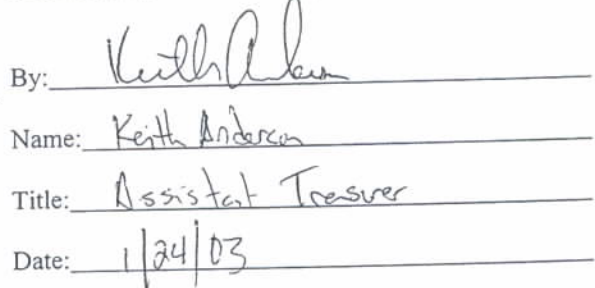 By: Keith Anderson
Name: Keith Anderson
Title: Assistant Treasurer
Date: 1/24/03